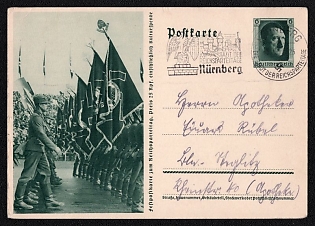 Postkarte
Nürnberg
6
Festpostkarte zum Reichsparteitag. Preis 25 Rpf. einschließlich Kulturspende
Herrn Apotheker
Eduard Rübel
Bln. Steglitz
(Apotheke)
Straße, Hausnummer, Gebäudeteil, Stockwerk oder Postschließfachnummer